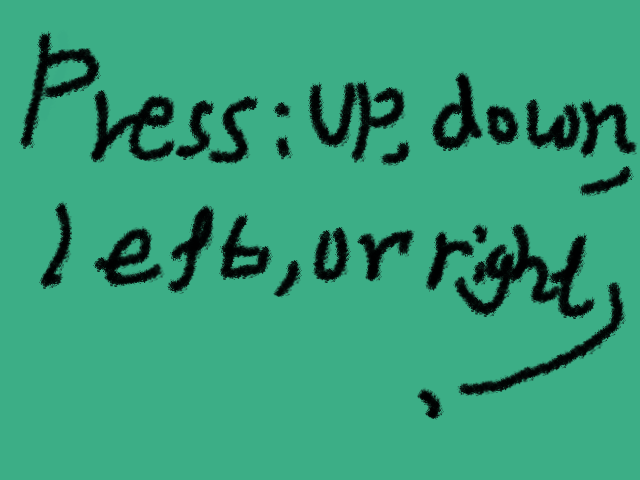 Press: up, down,
left, or right,